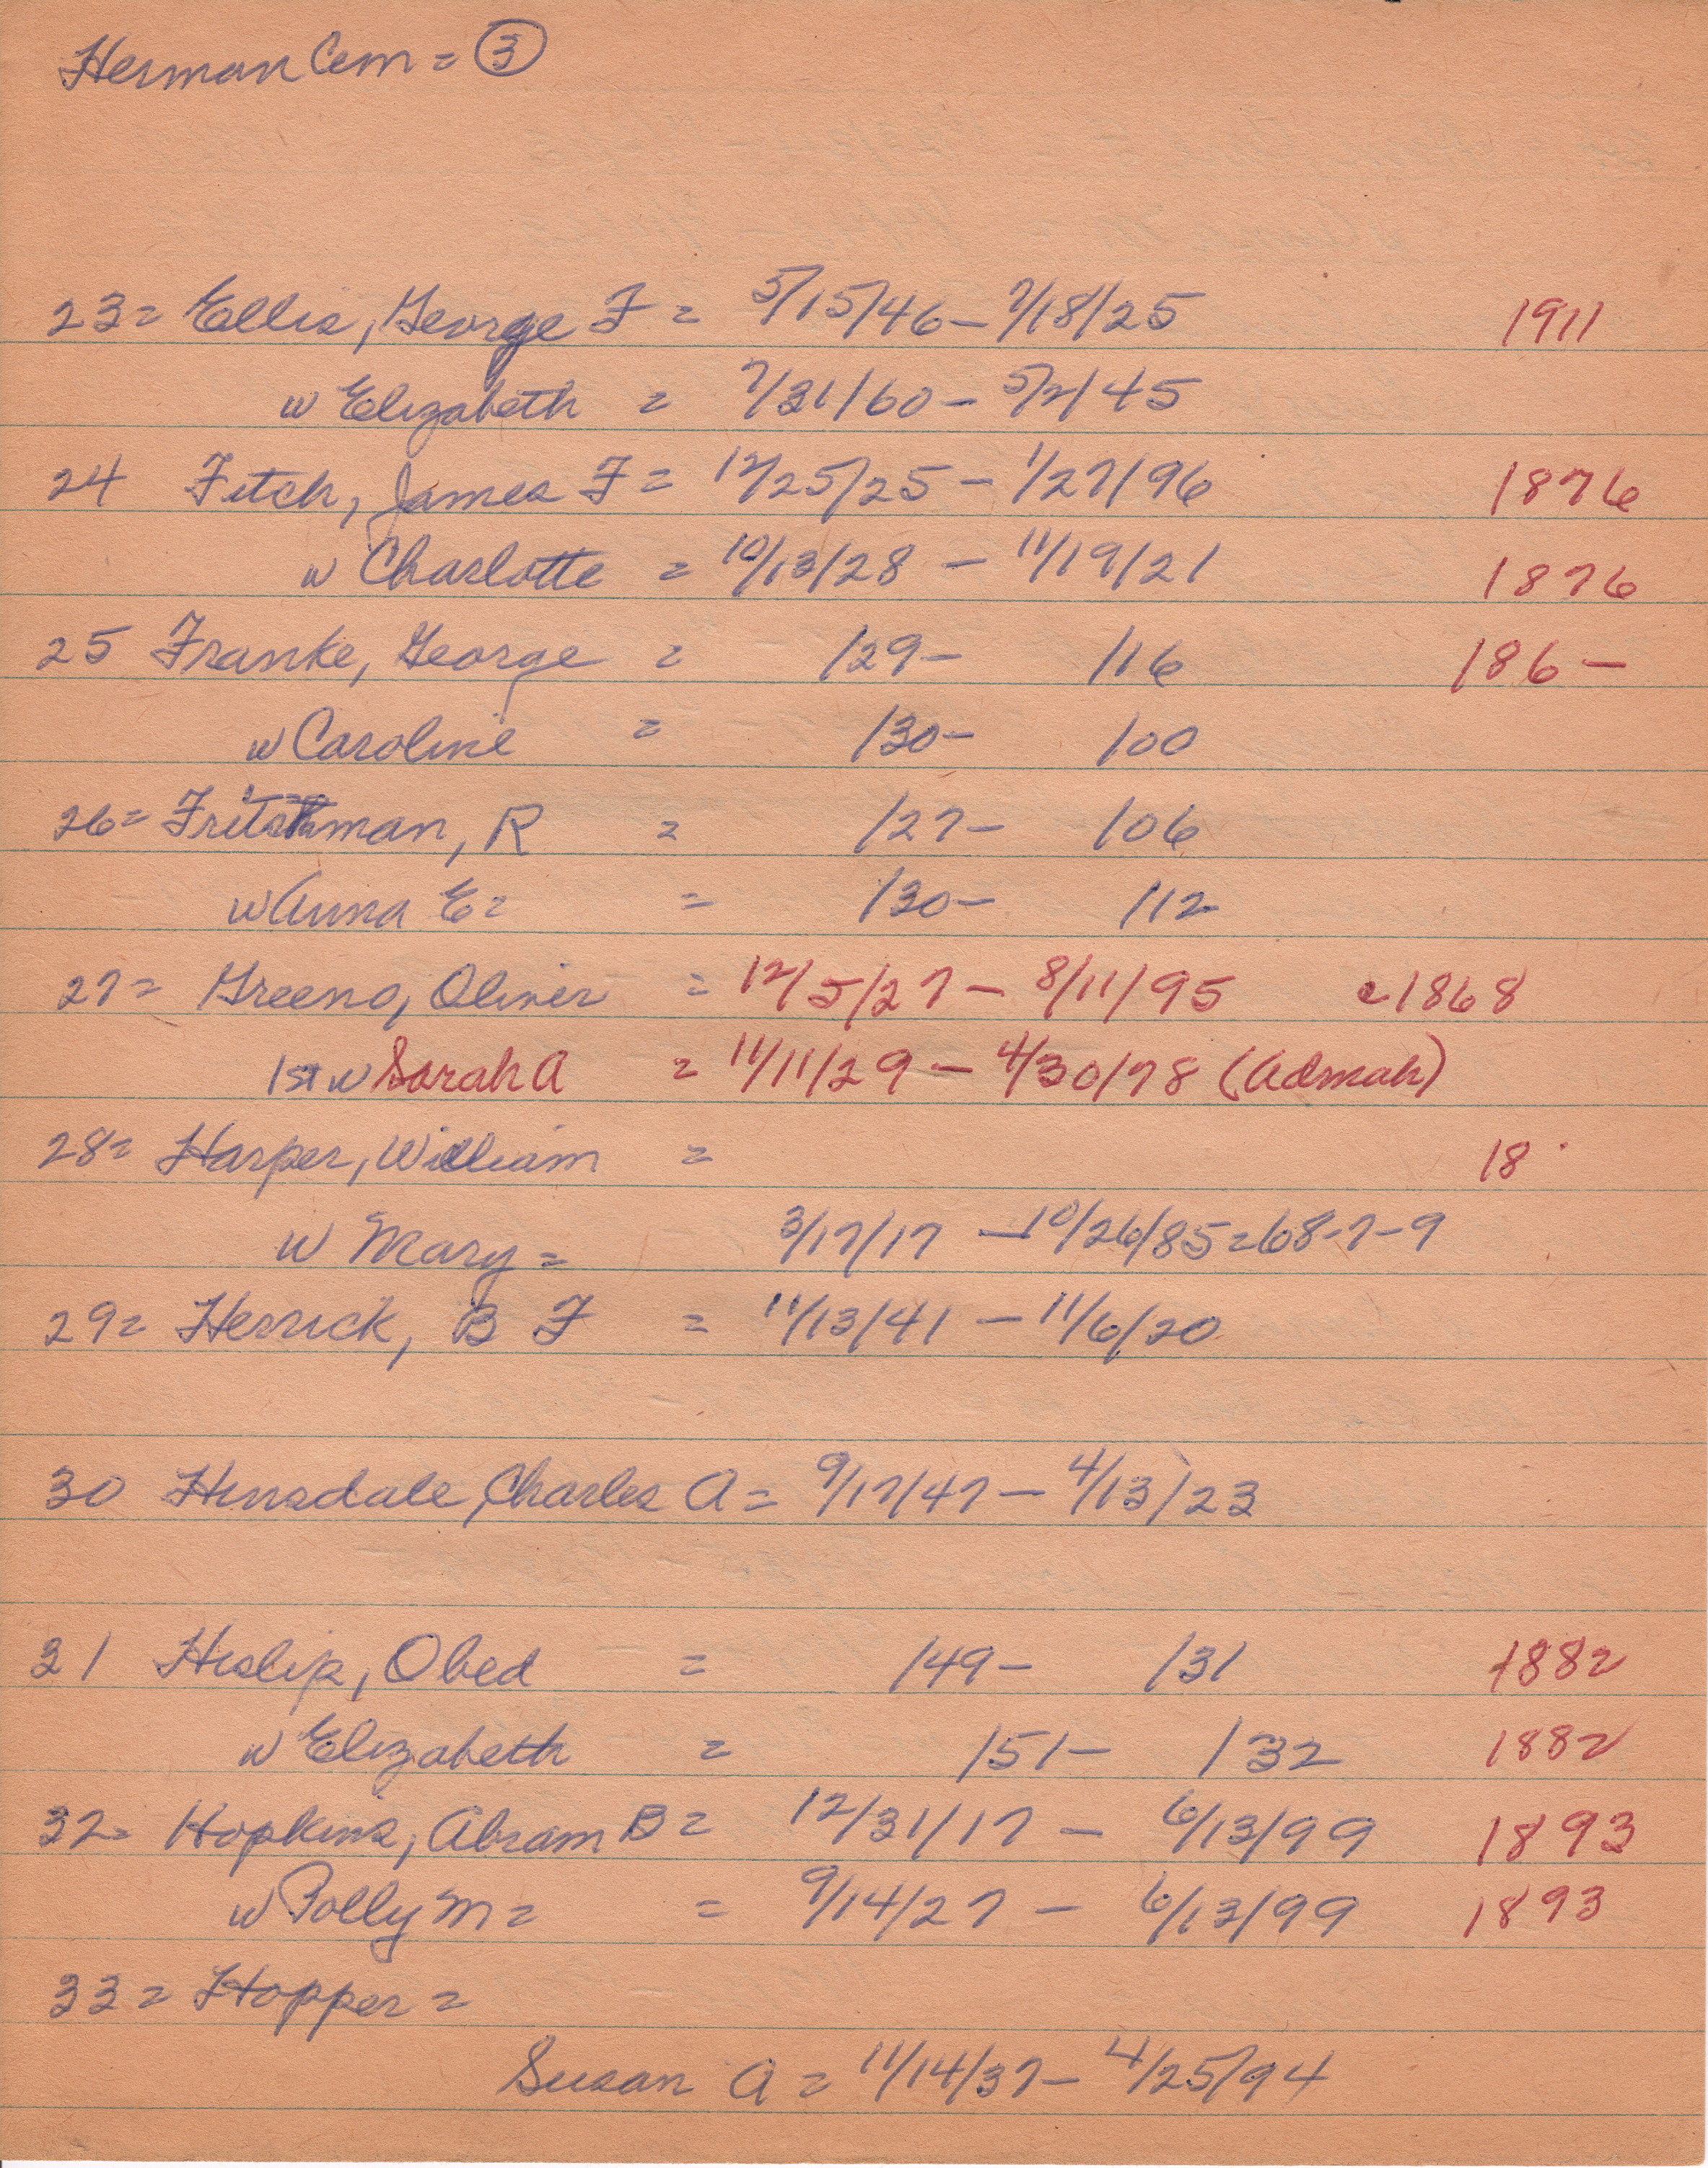 Herman Cem = ③
23 = Ellis, George F = 5/15/46 - 7/18/25 1911
w Elizabeth = 7/31/60 - 5/2/45
24 Fitch, James F = 12/25/25 - 1/27/96 1876
w Charlotte = 10/13/28 - 11/19/21 1876
25 Franke, George = /29 - /16 186-
w Caroline = /30 - /00
26 = , R = /27 - /06
w Anna E = = /30 - /12
27 = Greeno, Oliver = 12/5/27 - 8/11/95 c1868
1st w Sarah A = 11/11/29 - 4/30/78 (Admah)
28 = Harper, William = 18
w Mary = 3/17/17 - 10/26/85 = 68-7-9
29 = Herrick, B F = 11/13/41 - 11/6/20
30 Hinsdale, Charles A = 9/17/47 - 4/13/23
31 Hislip, Obed = /49 - /31 1882
w Elizabeth = /51 - /32 1882
32 = Hopkins, Abram B = 12/31/17 - 6/13/99 1893
w Polly M = = 9/14/27 - 6/13/99 1893
33 = Hopper =
Susan A = 11/14/37 - 4/25/94